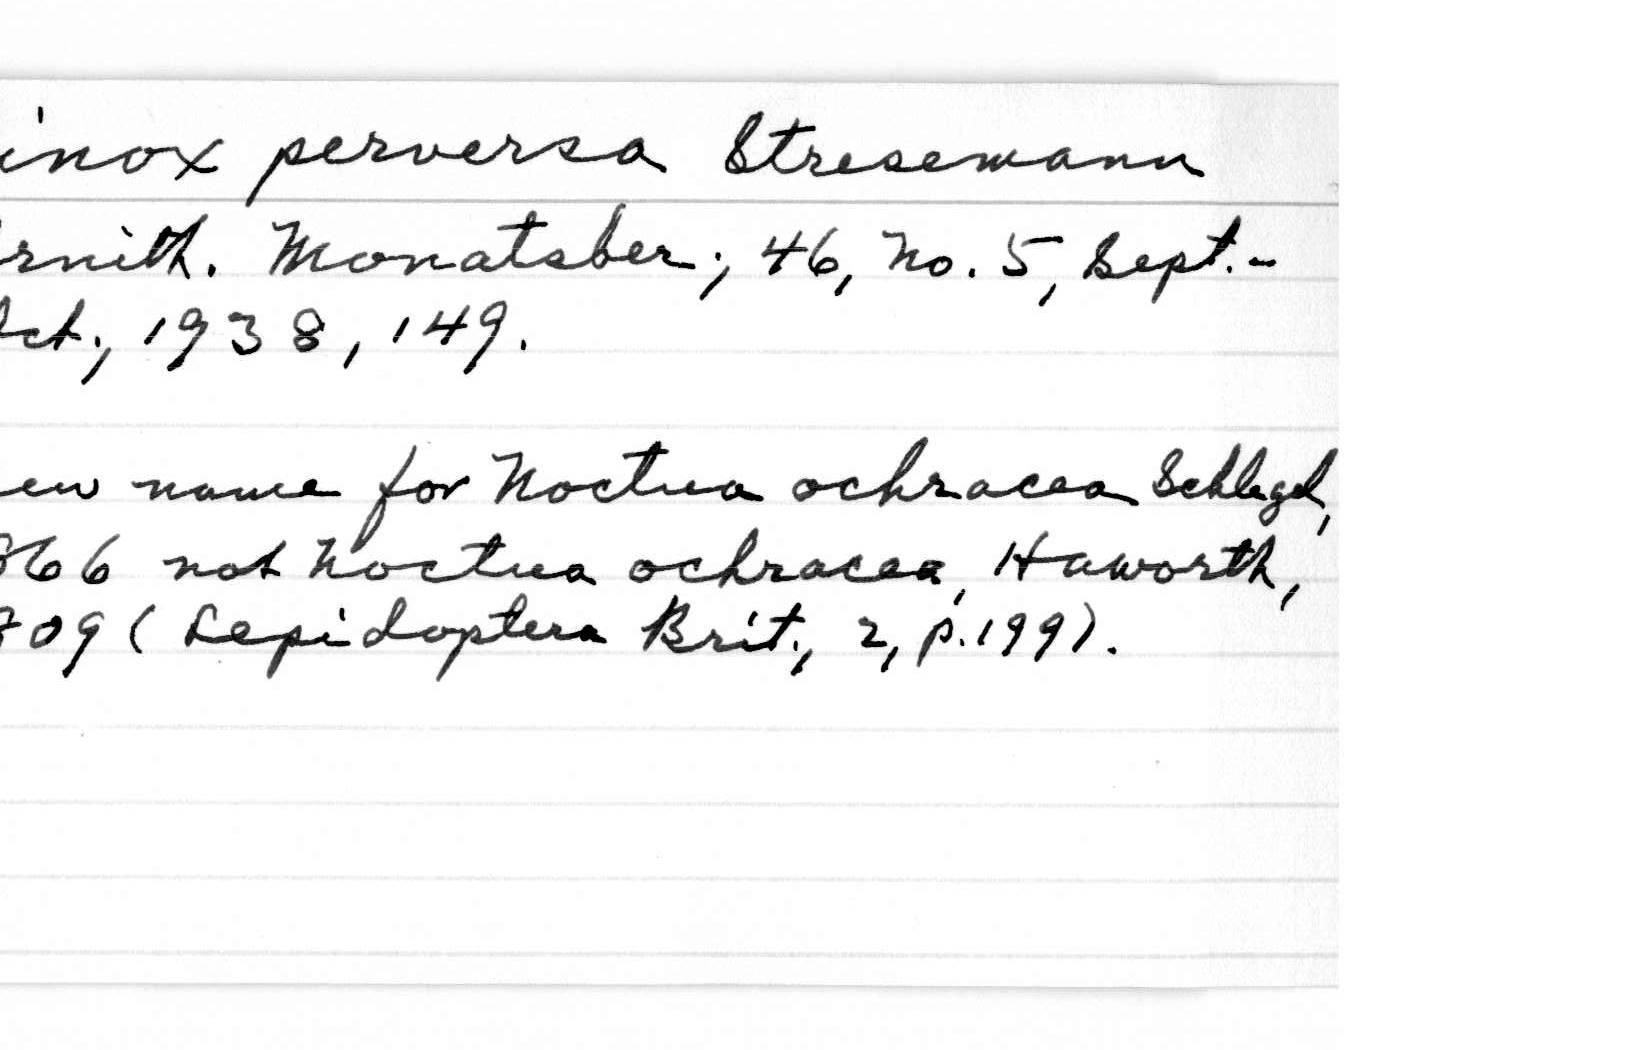 inox perversa Stresemann
rnith. Monatsber., 46, No. 5, Sept.-
ct., 1938, 149.
ew name for Noctua ochracea Schlegel,
866 not Noctua ochracea, Haworth,
809 (Lepidoptera Brit., 2, p. 199).